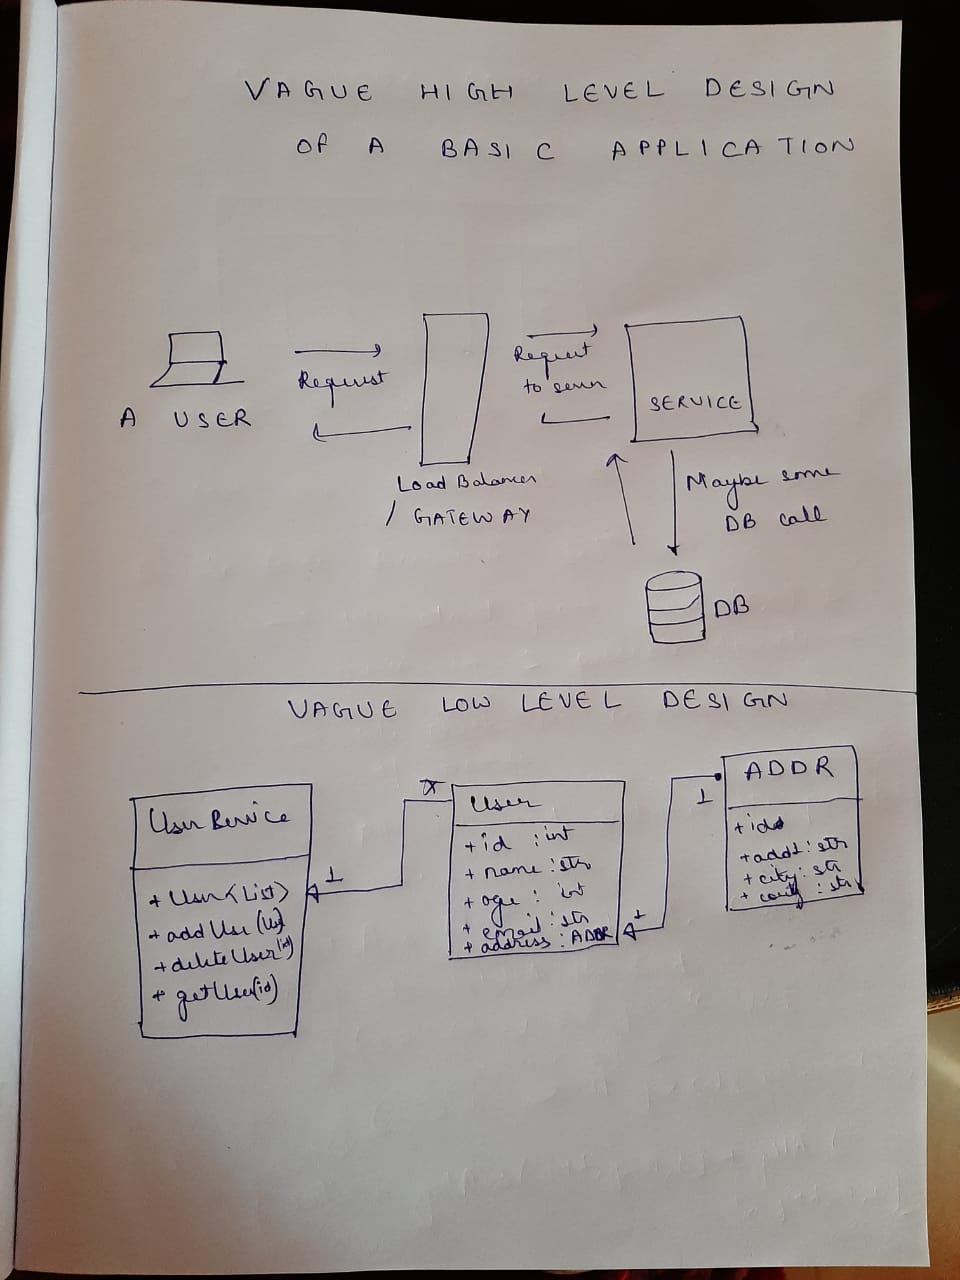 VAGUE HIGH LEVEL DESIGN
OF A BASIC APPLICATION
A USER
Request
Load Balancer
/ GATEWAY
Request
to server
SERVICE
Maybe some
DB call
DB
VAGUE LOW LEVEL DESIGN
User Service
+ User<List>
+ addUser(u)
+ deleteUser(id)
+ getUser(id)
1
*
User
+ id : int
+ name : str
+ age : int
+ email : str
+ address : ADDR
1
1
ADDR
+ id
+ add1 : str
+ city : str
: str